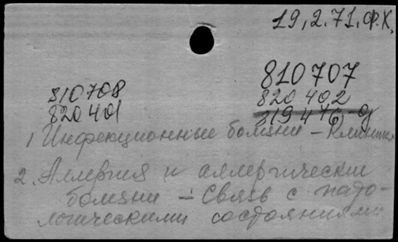 19,2.71.Ф.Х.
810707
810708
820402
820401
319476)-д
1 Инфекционные болезни - Клиника
2. Аллергия и аллергические
болезни - Связь с пато-
логическими состояниями